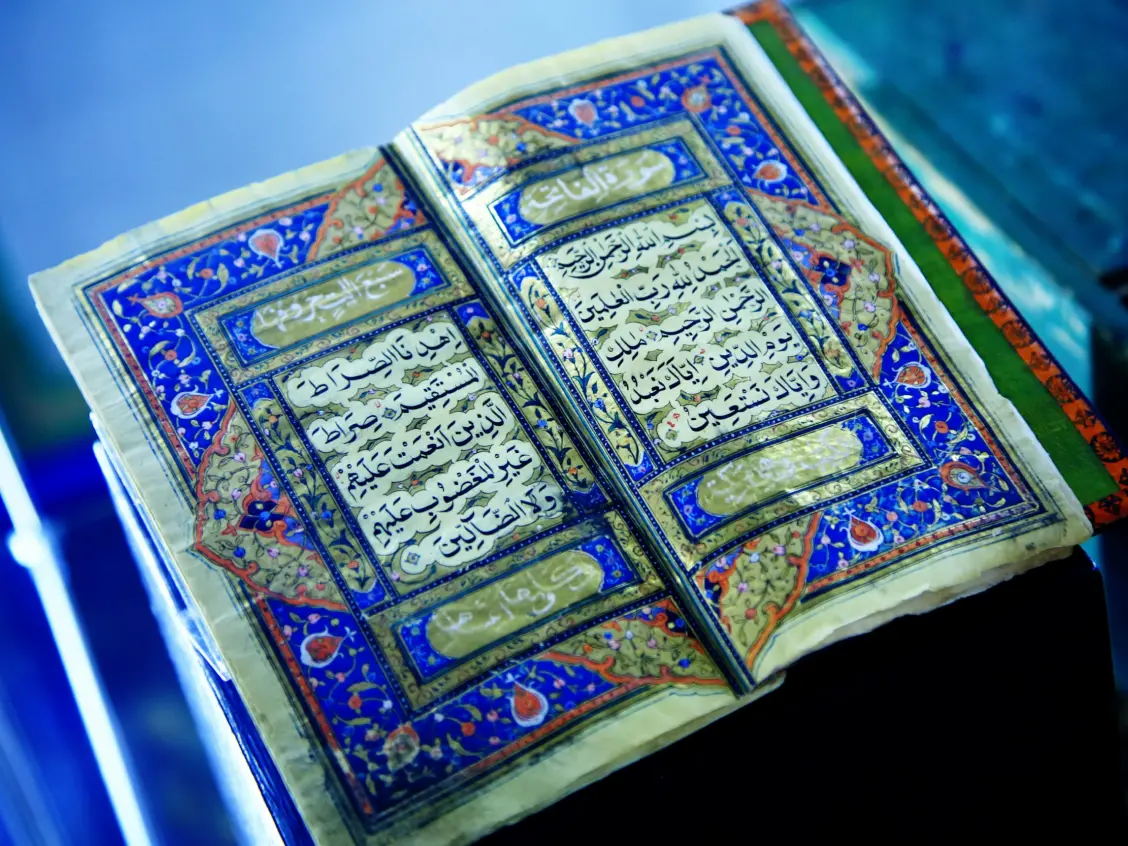 سورة الفاتحة
بِسْمِ اللهِ الرَّحْمٰنِ الرَّحِيْمِ
اَلْحَمْدُ لِلّٰهِ رَبِّ الْعٰلَمِيْنَ
الرَّحْمٰنِ الرَّحِيْمِ مٰلِكِ
يَوْمِ الدِّيْنِ اِيَّاكَ نَعْبُدُ
وَاِيَّاكَ نَسْتَعِيْنُ
سبع حروفها
اِهْدِنَا الصِّرَاطَ
الْمُسْتَقِيْمَ صِرَاطَ
الَّذِيْنَ اَنْعَمْتَ عَلَيْهِمْ
غَيْرِ الْمَغْضُوْبِ عَلَيْهِمْ
وَلَا الضَّآلِّيْنَ